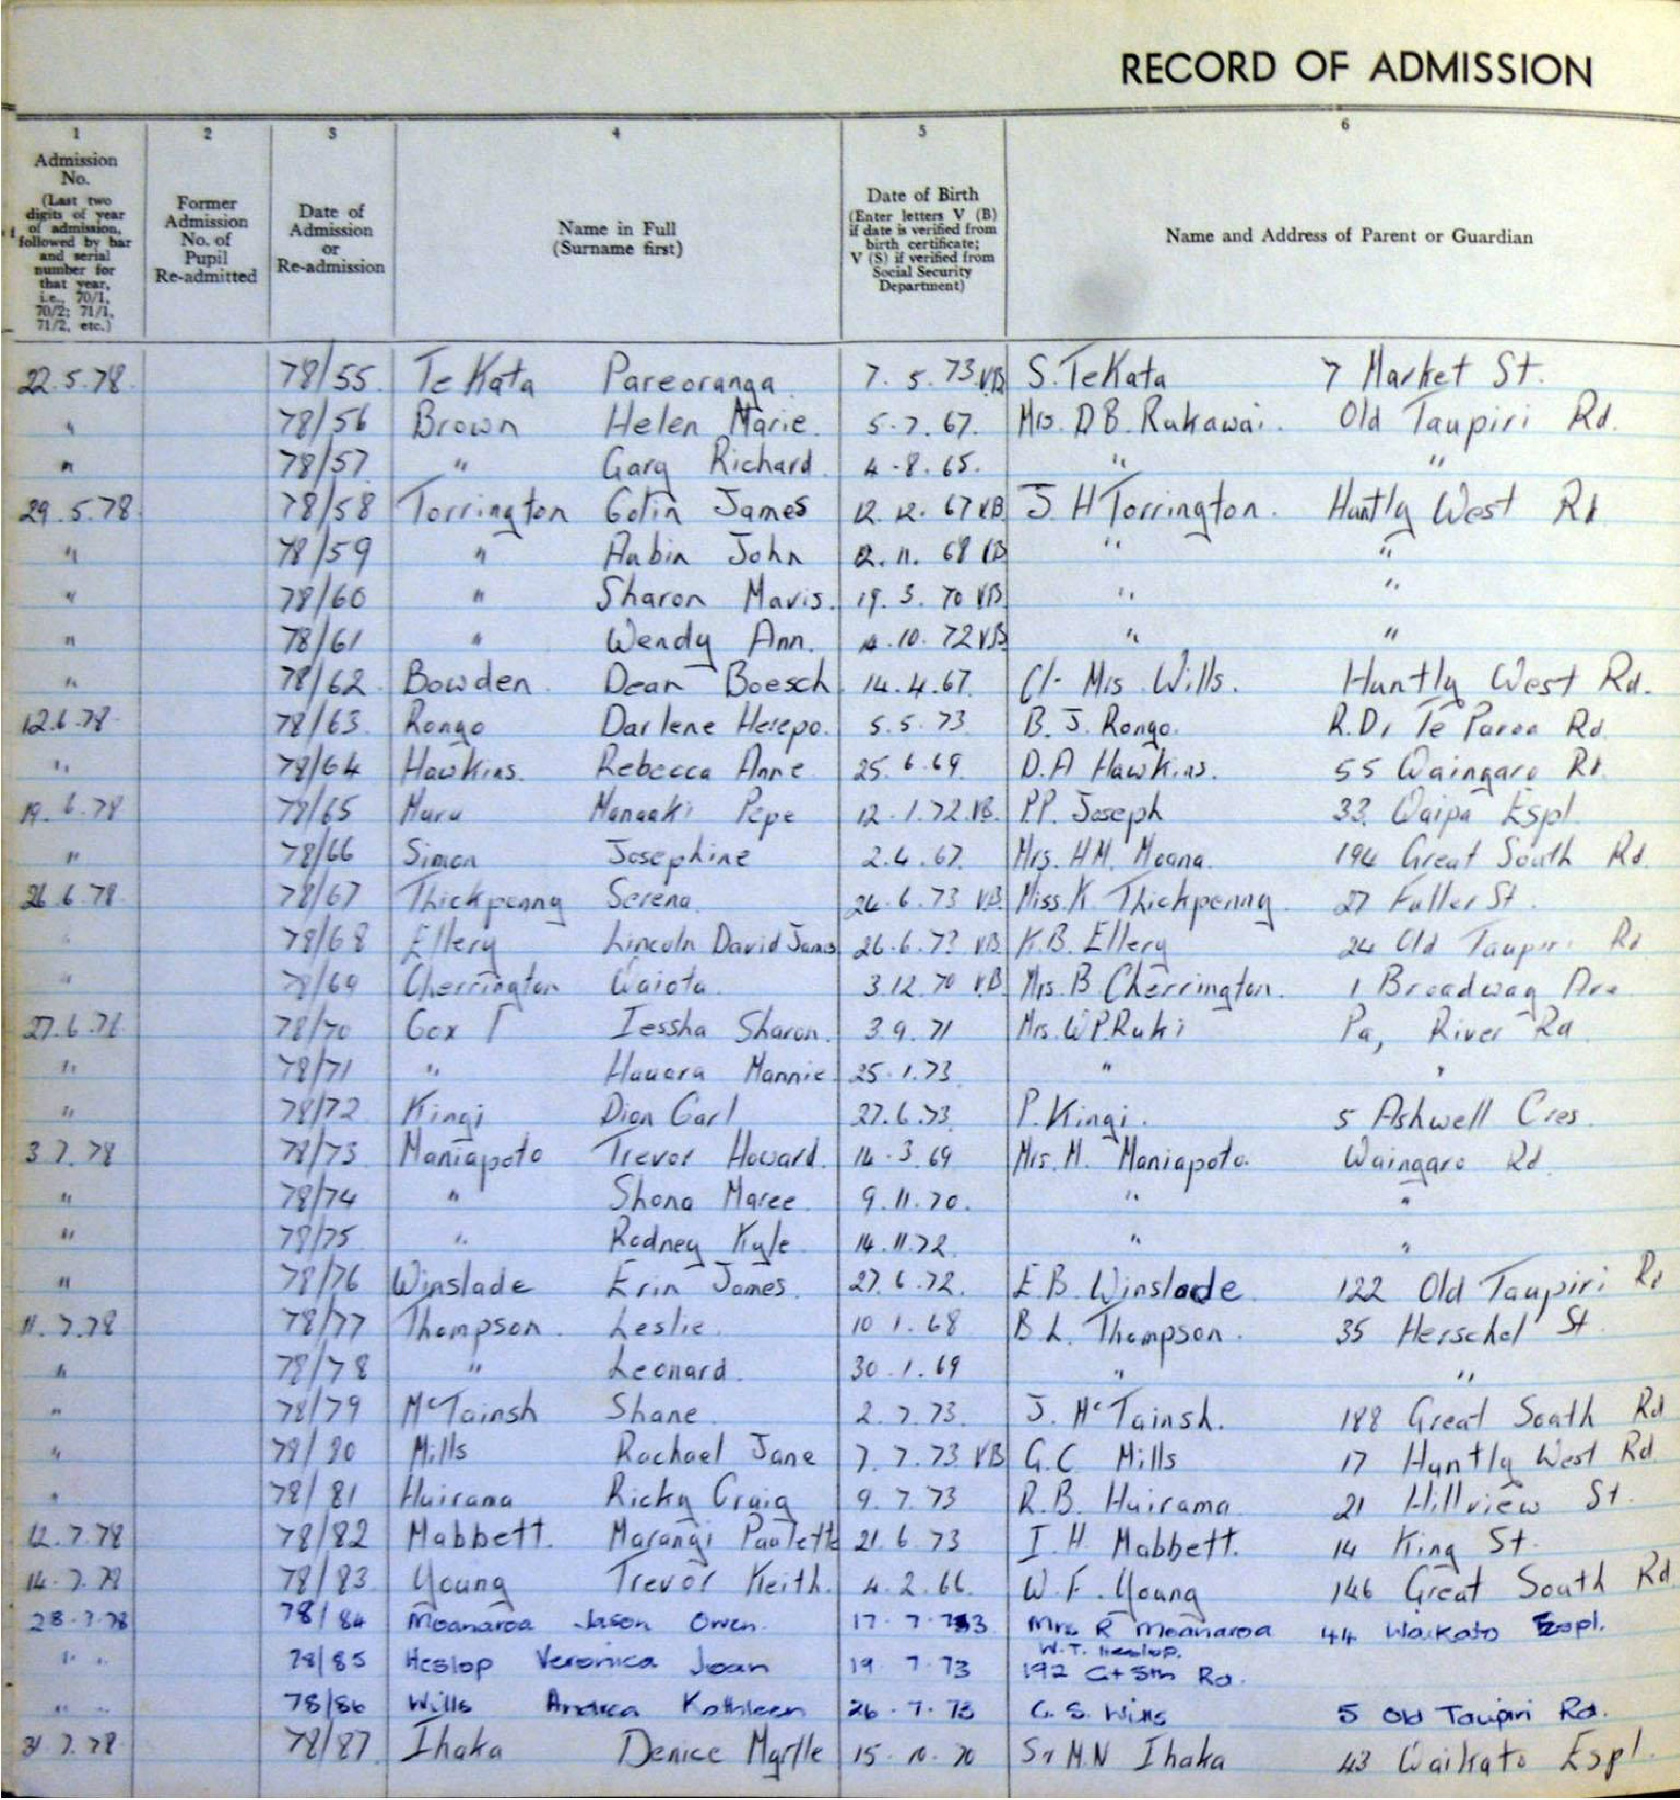 RECORD OF ADMISSION
1 2 3 4 5 6
Admission No. (Last two digits of year of admission, followed by bar and serial number for that year, i.e., 70/1, 70/2; 71/1, 71/2, etc.)
Former Admission No. of Pupil Re-admitted
Date of Admission or Re-admission
Name in Full (Surname first)
Date of Birth (Enter letters V (B) if date is verified from birth certificate; V (S) if verified from Social Security Department)
Name and Address of Parent or Guardian
22.5.78 78/55 Te Kata Pareoranga 7.5.73 VB S. Te Kata 7 Market St.
" 78/56 Brown Helen Marie. 5.7.67. Mrs. D B. Rukawai. Old Taupiri Rd.
" 78/57 " Gary Richard 4.8.65. " "
29.5.78 78/58 Torrington Colin James 12.12.67 VB J. H Torrington. Huntly West Rd
" 78/59 " John 12.11.68 VB " "
" 78/60 " Sharon Mavis. 19.3.70 VB " "
" 78/61 " Wendy Ann. 4.10.72 VB " "
" 78/62 Bowden Dean Boesch 14.4.67. C/- Mrs Wills. Huntly West Rd.
12.6.78 78/63 Rongo Darlene Herepo. 5.5.73 B. J. Rongo. R.D. Te Rd.
" 78/64 Hawkins. Rebecca Anne 25.6.69 D.A Hawkins. 55 Waingaro Rd
19.6.78 78/65 Muru Manaaki Pepe 12.1.72 VB. P.P. Joseph 33 Waipa Espl
" 78/66 Simon Josephine 2.4.67. Mrs. H.M. Moana. 194 Great South Rd
26.6.78 78/67 Thickpenny Serena 26.6.73 VB. Miss. K. Thickpenny 27 Fuller St.
" 78/68 Ellery Lincoln David James 26.6.73 VB K.B. Ellery 24 Old Taupiri Rd
" 78/69 Cherrington Waiota. 3.12.70 VB Mrs. B. Cherrington. 1 Broadway Ave
27.6.78 78/70 Cox Iessha Sharon. 3.9.71 Mrs. W P. Ruki Pa, River Rd
" 78/71 " Hauora Mannie 25.1.73 " "
" 78/72 Kingi Dion Carl 27.6.73. P. Kingi. 5 Ashwell Cres.
3.7.78 78/73 Maniapoto Trevor Howard. 14.3.69 Mrs. M. Maniapoto. Waingaro Rd.
" 78/74 " Shona Maree. 9.11.70. " "
" 78/75 " Rodney Kyle. 14.11.72. " "
" 78/76 Winslade Erin James. 27.6.72. E.B. Winslade 122 Old Taupiri Rd
11.7.78 78/77 Thompson. Leslie. 10 1.68 B L. Thompson. 35 Herschel St.
" 78/78 " Leonard. 30.1.69 " "
" 78/79 McTainsh Shane. 2.7.73. J. McTainsh. 188 Great South Rd
" 78/80 Mills Rachael Jane 7.7.73 VB G.C Mills 17 Huntly West Rd.
" 78/81 Huirama Ricky Craig 9.7.73 R.B. Huirama 21 Hillview St.
12.7.78 78/82 Mabbett. Marangi Paulette 21.6.73 I.H. Mabbett. 14 King St.
14.7.78 78/83 Young Trevor Keith. 4.2.66. W.F. Young 146 Great South Rd
28.7.78 78/84 Moanaroa Jason Owen. 17.7.73 Mrs R Moanaroa 44 Waikato Espl.
W.T. Heslop.
" " 78/85 Heslop Veronica Joan 19.7.73 192 Gt Sth Rd.
" " 78/86 Wills Andrea Kathleen 26.7.73 G. S. Wills 5 Old Taupiri Rd.
31.7.78 78/87 Ihaka Denice Myrtle 15.10.70 M.N Ihaka 43 Waikato Espl.